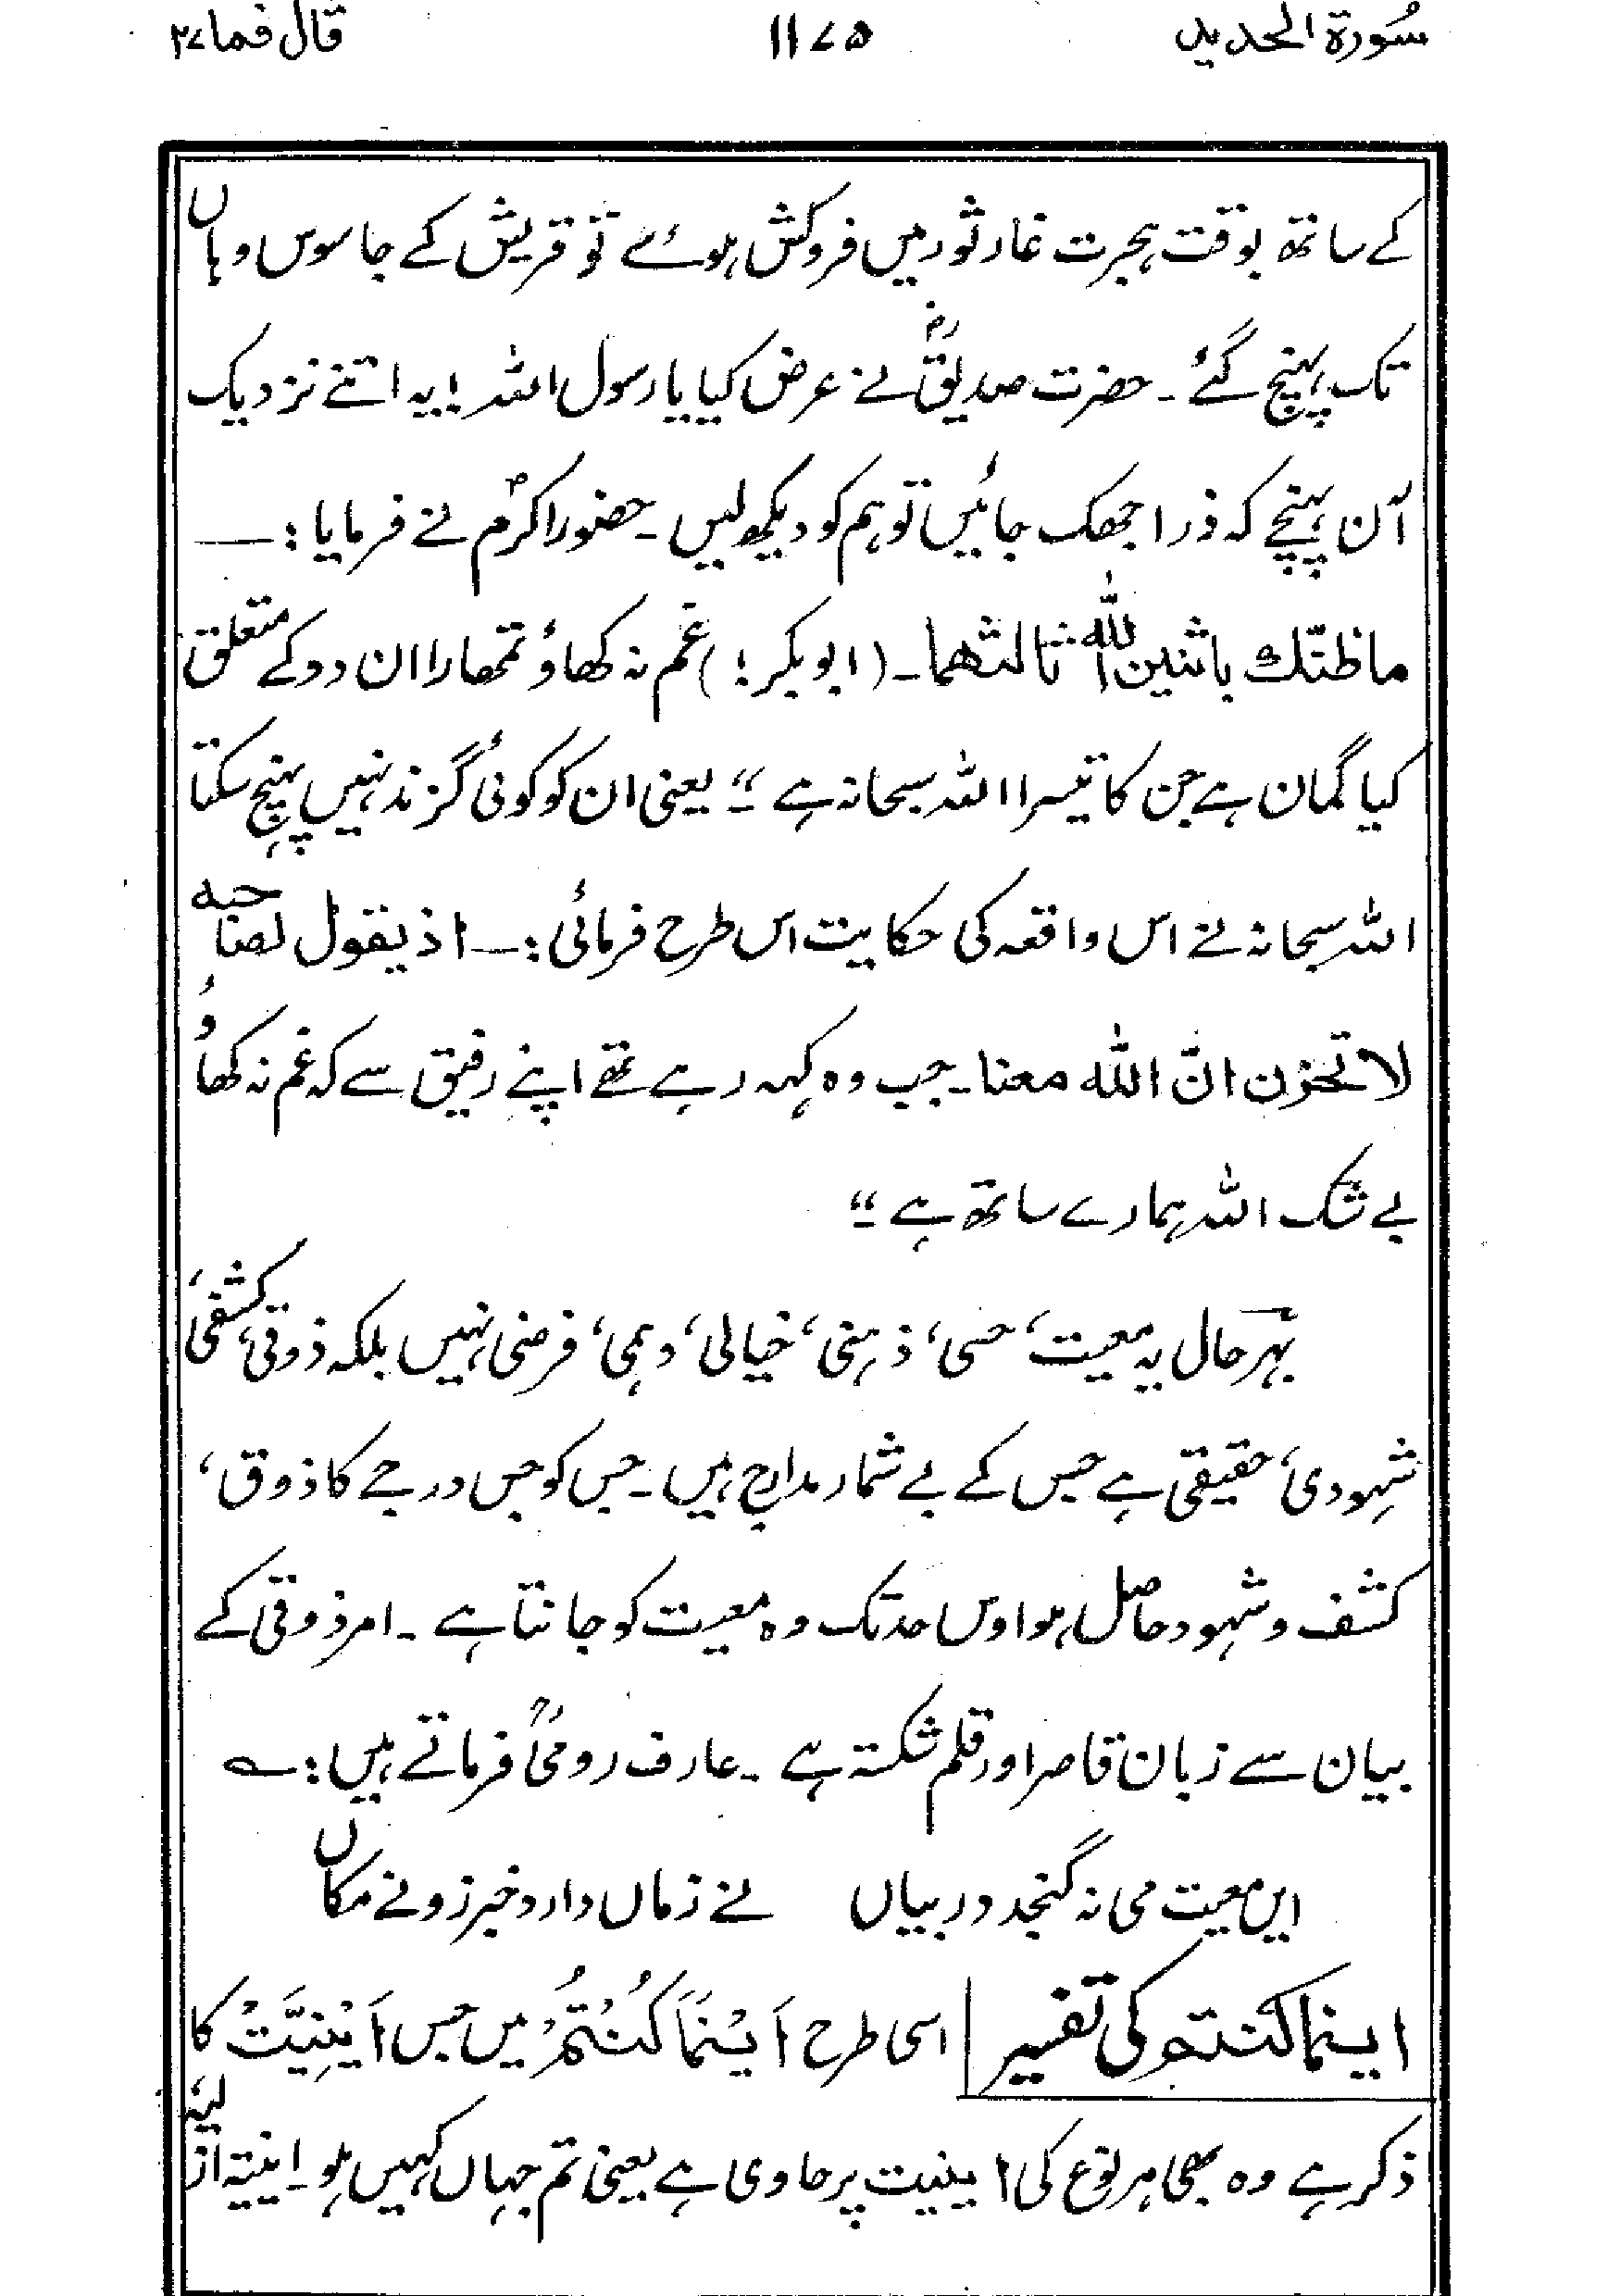 سُورۃ الحدید ۱۱۷۵ قال فما ۲۷
کے ساتھ بوقت ہجرت غار ثور میں فروکش ہوئے تو قریش کے جاسوس وہاں
تک پہنچ گئے ۔ حضرت صدیقؓ نے عرض کیا یا رسول اللہ ! یہ اتنے نزدیک
آن پہنچے کہ ذرا جھک جائیں تو ہم کو دیکھ لیں ۔ حضور اکرمؐ نے فرمایا : ــــ
ماظنّك باثنین اللّٰه ثالثهما ۔ (ابوبکر !) غم نہ کھاؤ تمھارا ان دو کے متعلق
کیا گمان ہے جن کا تیسرا اللہ سبحانہ ہے ۔“ یعنی ان کو کوئی گزند نہیں پہنچ سکتا
اللہ سبحانہ نے اس واقعہ کی حکایت اس طرح فرمائی : ــ اذ یقول لصاحبه
لا تحزن انّ اللّٰه معنا ۔ جب وہ کہہ رہے تھے اپنے رفیق سے کہ غم نہ کھاؤ
بے شک اللہ ہمارے ساتھ ہے ۔“
بہرحال یہ معیت، حسی، ذہنی، خیالی، وہمی، فرضی نہیں بلکہ ذوقی، کشفی،
شہودی، حقیقی ہے جس کے بے شمار مدارج ہیں ۔ جس کو جس درجے کا ذوق،
کشف و شہود حاصل ہوا اوس حد تک وہ معیت کو جانتا ہے ۔ امر ذوقی کے
بیان سے زبان قاصر اور قلم شکستہ ہے ۔ عارف رومیؒ فرماتے ہیں : ؎
ایں معیت می نہ گنجد در بیاں نے زماں دارد خبر زو نے مکاں
اینما کنتم کی تفسیر | اسی طرح اَیْنَمَا کُنْتُمْ میں جس اَیْنِیَّتْ کا
ذکر ہے وہ بھی ہر نوع کی اینیت پر حاوی ہے یعنی تم جہاں کہیں ہو ۔ اینیتہ ازلیہ،